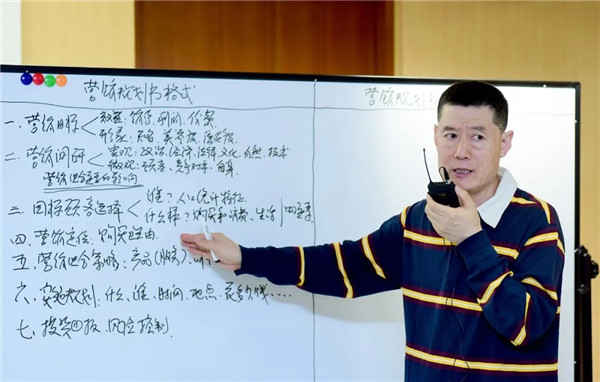 营销规划书格式
一.营销目标<数量:销量.利润.份额
形象:知名.美誉度.满意度
二.营销调研<宏观:政治.经济.法律.文化.自然.技术
微观:顾客.竞争对手.自身
营销组合要素的影响
三.目标顾客选择<谁?人口统计特征
什么样?购买和消费.生活
四.营销定位:购买理由
五.营销组合策略:产品(服务)、
六.实施规划.什么.谁.时间.地点.花多少钱....
七.投资回报.风险控制.
营销规划